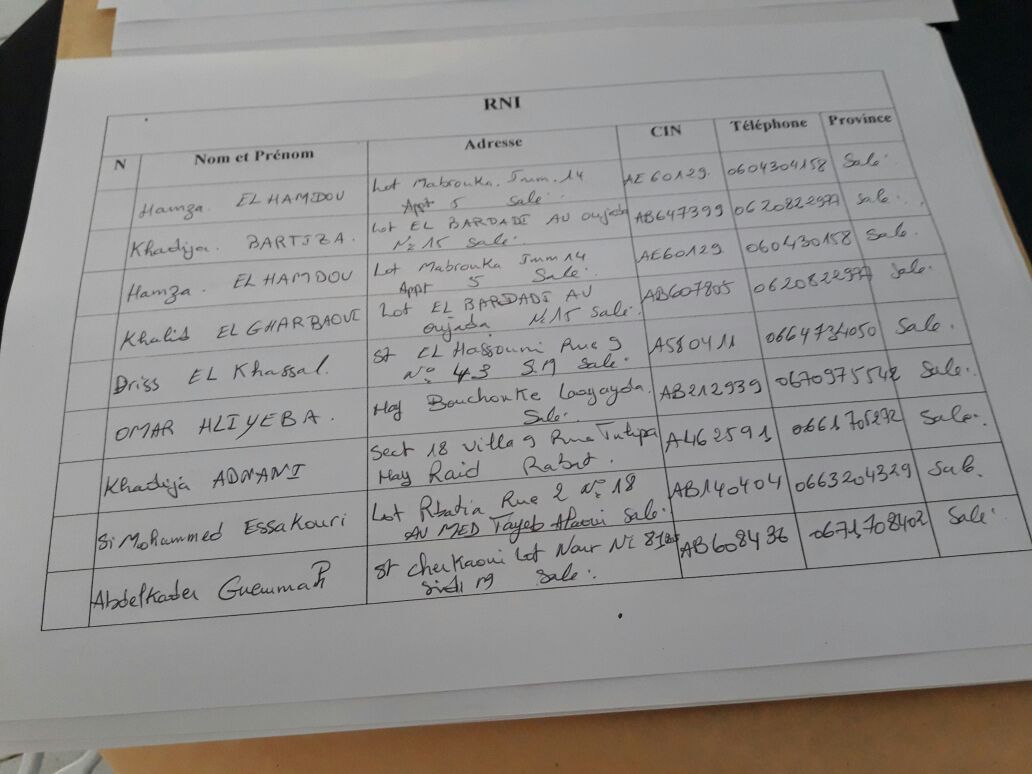 RNI
N Nom et Prénom Adresse CIN Téléphone Province
Hamza. EL HAMDOU Lot Mabrouka. Imm. 14 AE60129. 0604304158 Sale.
Appt 5 Sale.
Khadija. BARTIZA. Lot EL BARDADI AU oujada AB647399 0620822977 Sale.
N: 15 Sale.
Hamza. EL HAMDOU Lot Mabrouka Imm 14 AE60129 060430158 Sale.
Appt 5 Sale.
Khalid EL GHARBAOUI Lot EL BARDADI AU AB607805 0620822977 Sale.
oujada N: 15 Sale.
Driss EL Khassal. St EL Hassouni Rue 9 A580411 0664734050 Sale.
N° 43 S.M Sale.
OMAR HLIYEBA. Hay Bouchouke Laayayda. AB212939 0670975542 Sale.
Sale.
Khadija ADNANI Sect 18 Villa 9 Rue Tulipa A462591 0661705272 Sale.
Hay Raid Rabat.
Si Mohammed ESSakouri Lot Rbatia Rue 2 N° 18 AB140404 0663204329 Sale.
AV MED Tayeb Alaoui Sale.
Abdelkader Guemmah St cherkaoui Lot Nour N: 818 AB608436 0671708402 Sale.
Sidi M Sale.